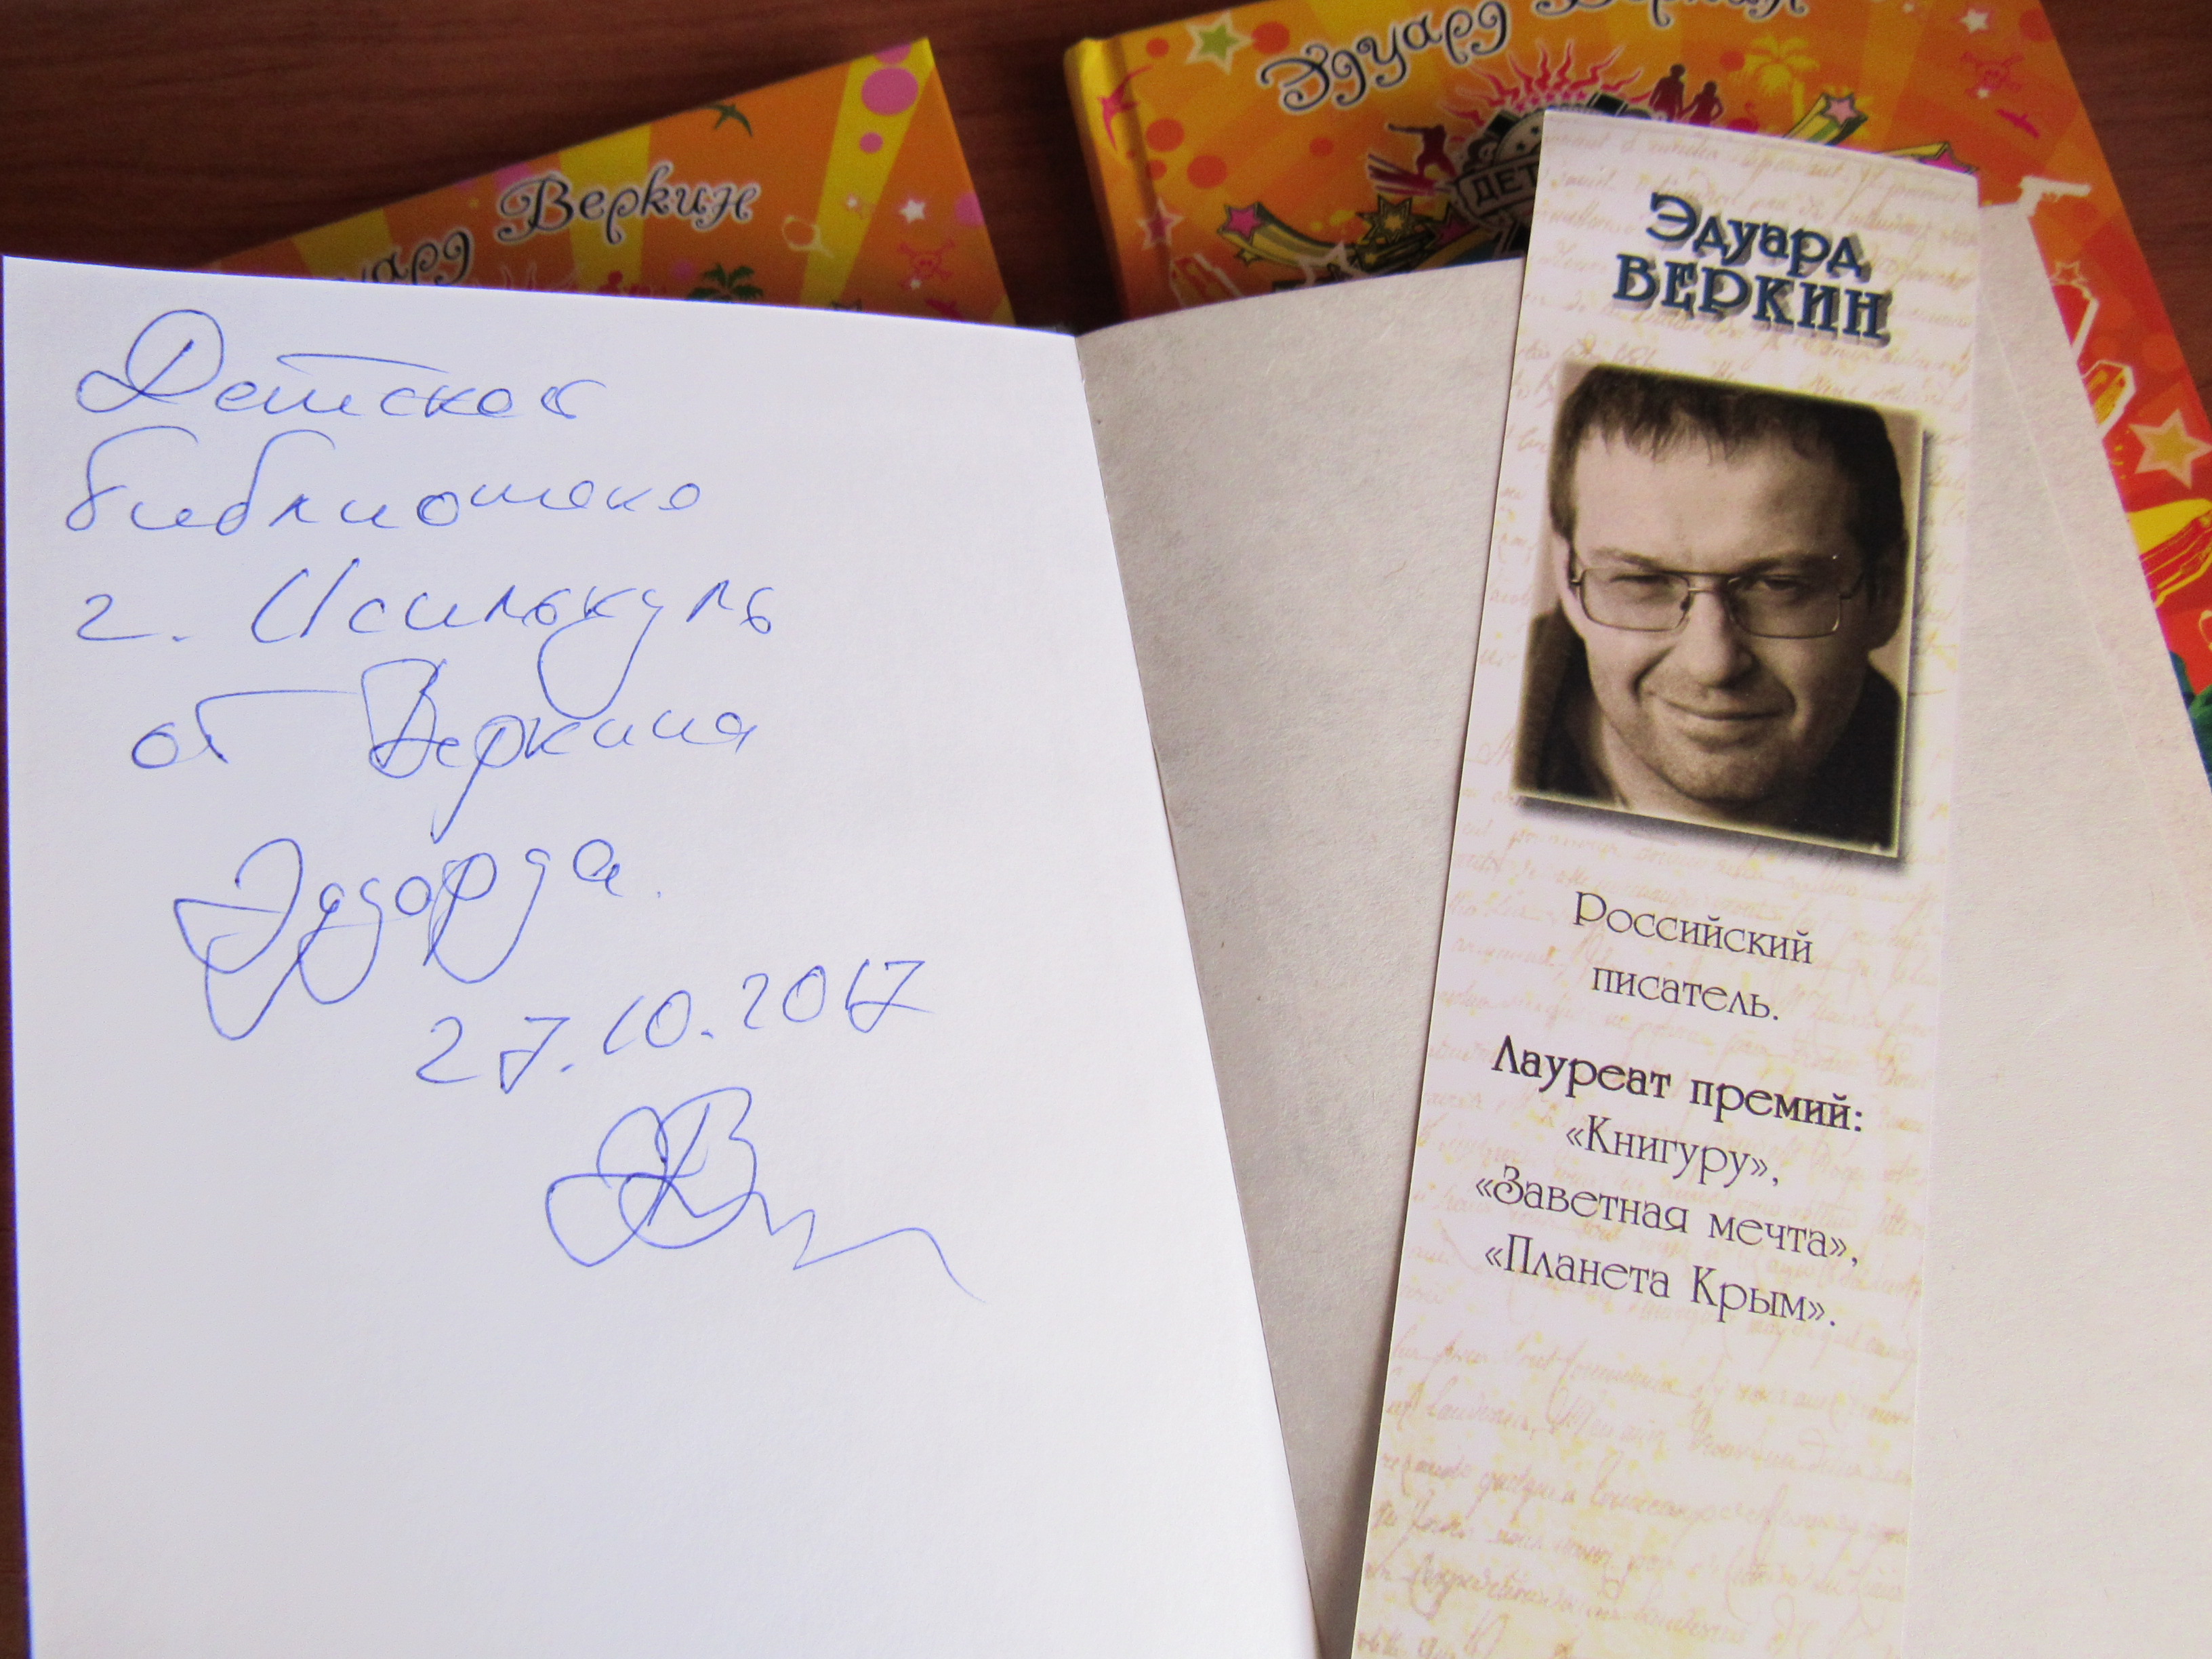 Эдуард Веркин
Веркин
уард
ДЕТ
Детской
библиотеке
г. Исилькуль
от Веркина
Эдуарда.
27.10.2017
Эдуард
ВЕРКИН
Российский
писатель.
Лауреат премий:
«Книгуру»,
«Заветная мечта»,
«Планета Крым».